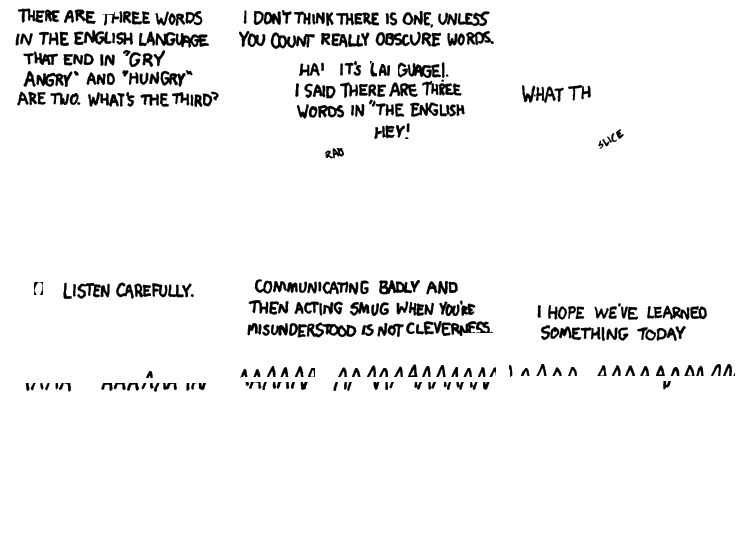 THERE ARE THREE WORDS
IN THE ENGLISH LANGUAGE
THAT END IN "GRY
ANGRY" AND "HUNGRY"
ARE TWO. WHAT'S THE THIRD?
I DON'T THINK THERE IS ONE, UNLESS
YOU COUNT REALLY OBSCURE WORDS.
HA! IT'S LAI GUAGE!.
I SAID THERE ARE THREE
WORDS IN "THE ENGLISH
HEY!
WHAT TH
SLICE
LISTEN CAREFULLY.
COMMUNICATING BADLY AND
THEN ACTING SMUG WHEN YOU'RE
MISUNDERSTOOD IS NOT CLEVERNESS.
I HOPE WE'VE LEARNED
SOMETHING TODAY